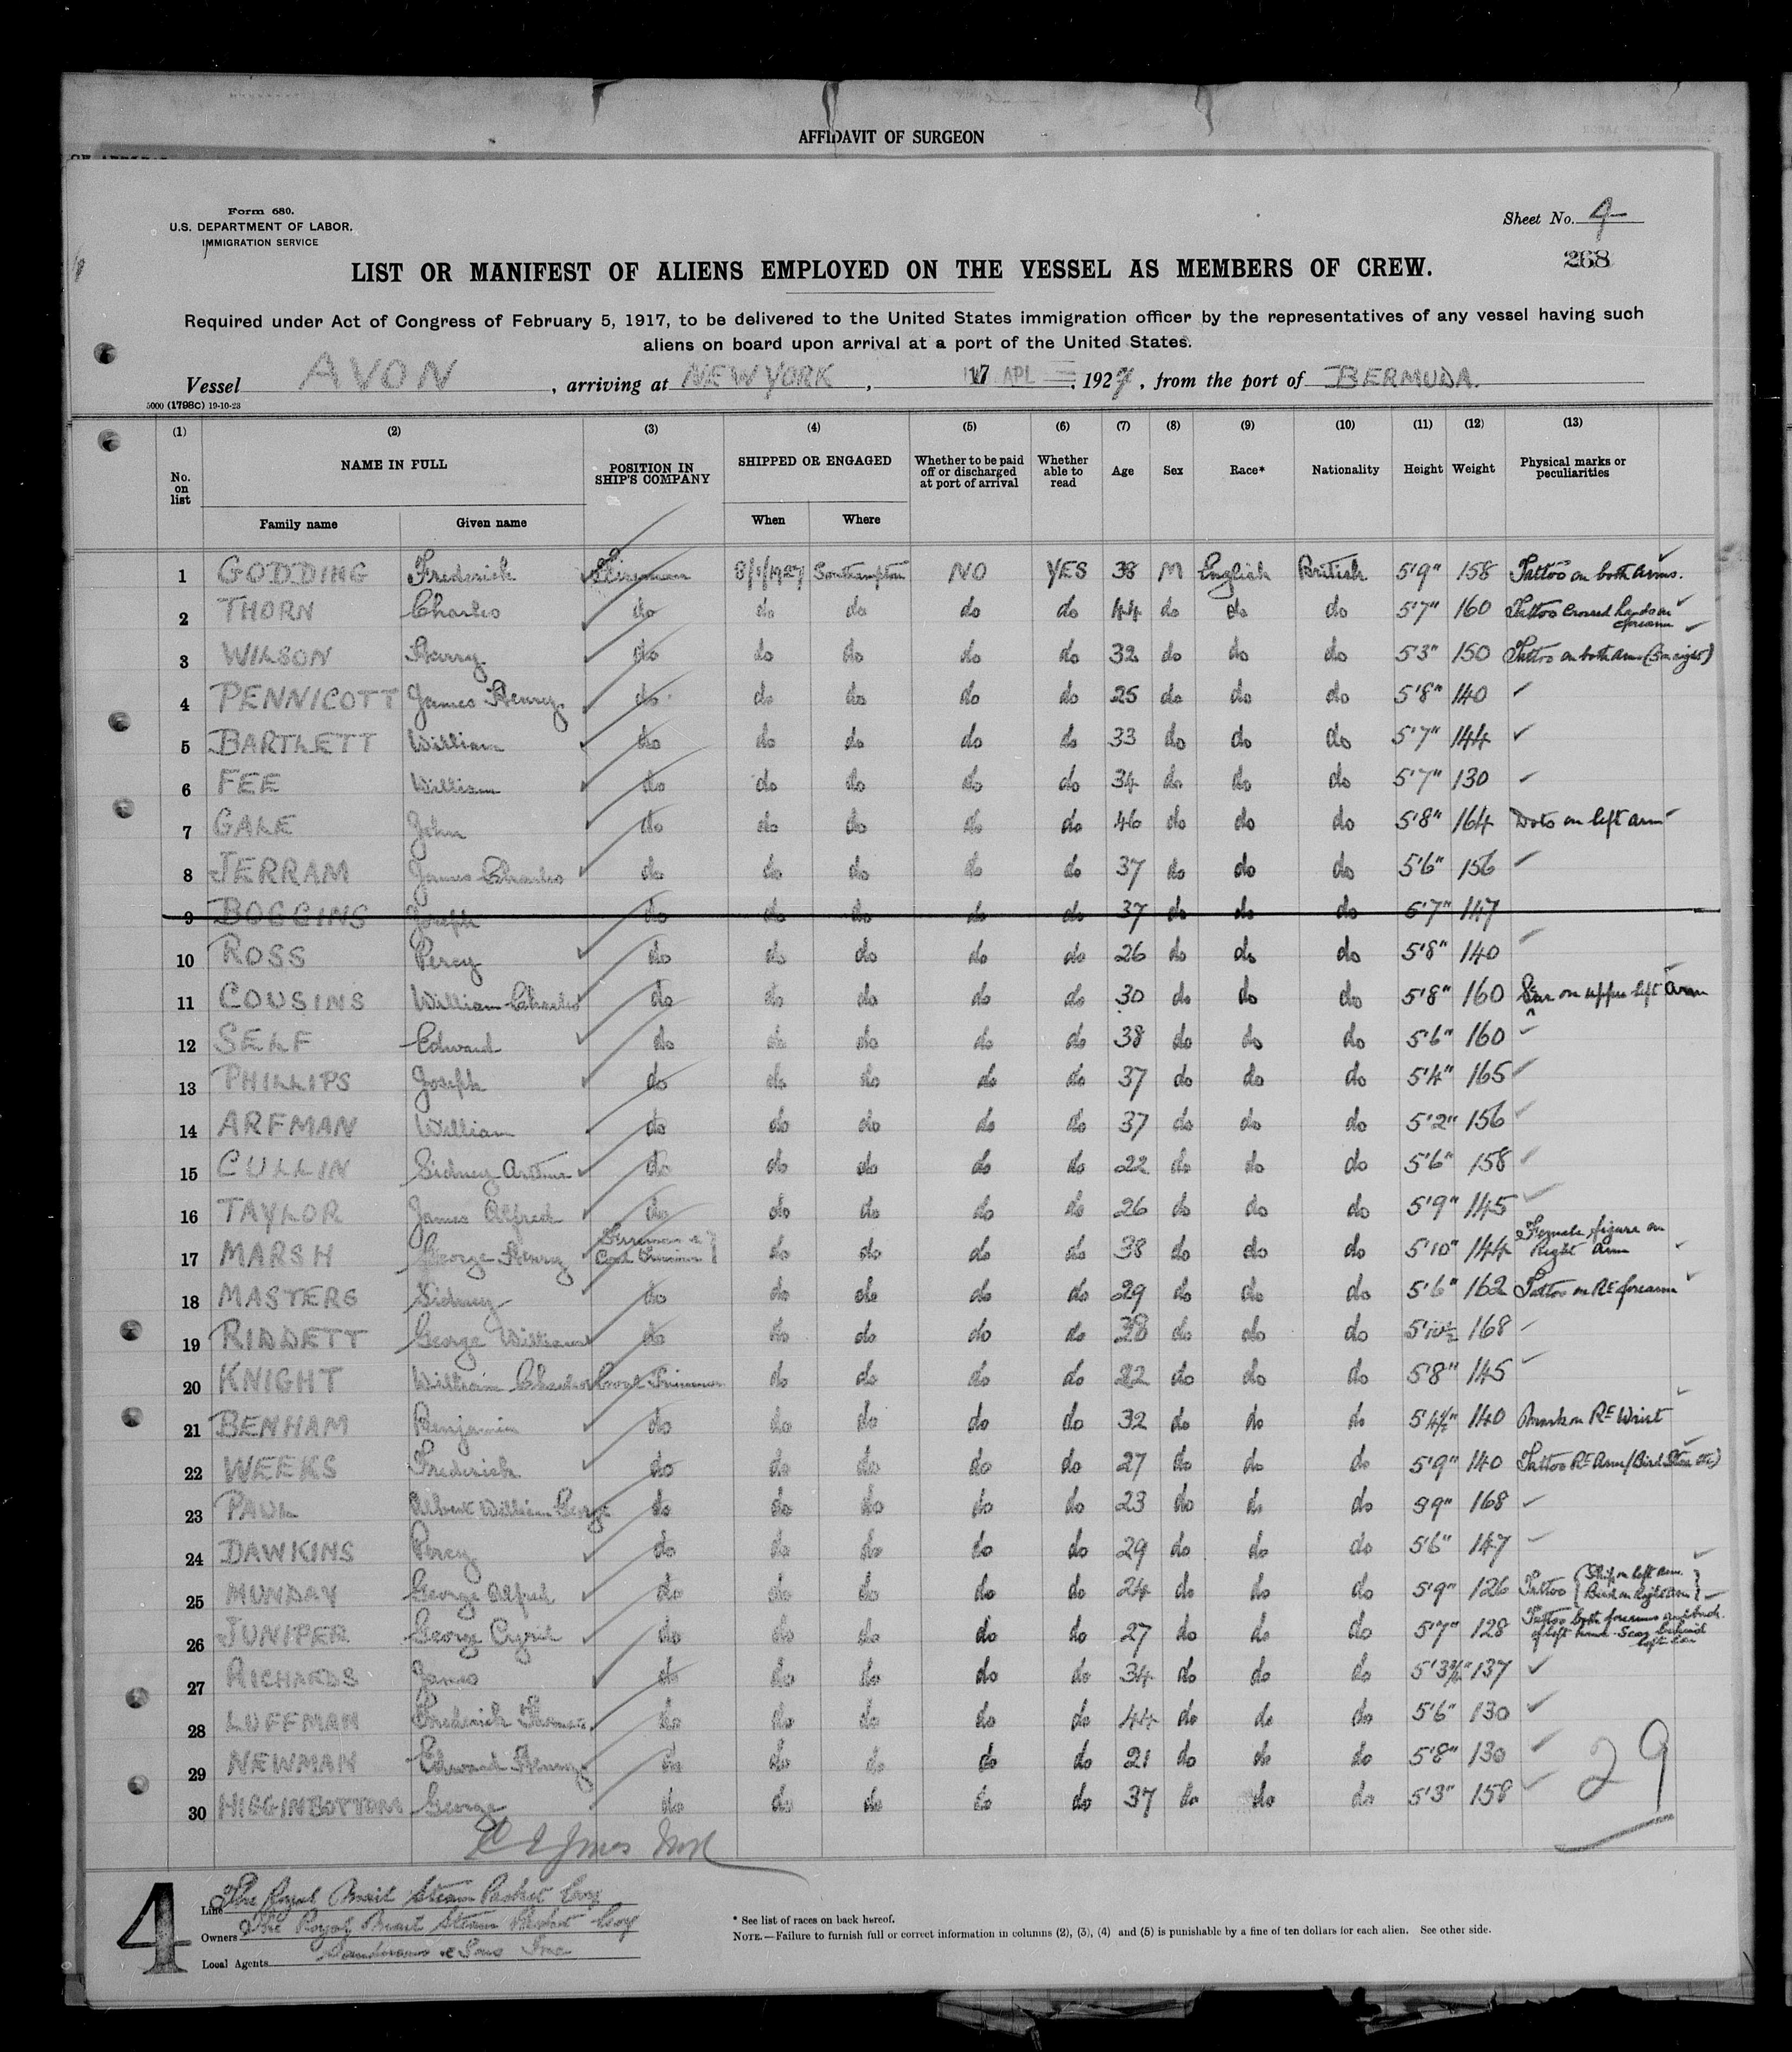 AFFIDAVIT OF SURGEON
Form 680.
U.S. DEPARTMENT OF LABOR.
IMMIGRATION SERVICE
Sheet No. 4
268
LIST OR MANIFEST OF ALIENS EMPLOYED ON THE VESSEL AS MEMBERS OF CREW.
Required under Act of Congress of February 5, 1917, to be delivered to the United States immigration officer by the representatives of any vessel having such
aliens on board upon arrival at a port of the United States.
Vessel AVON, arriving at NEW YORK, 17 APL, 1927, from the port of BERMUDA.
5000 (1798C) 19-10-23
(1) (2) (3) (4) (5) (6) (7) (8) (9) (10) (11) (12) (13)
No. on list NAME IN FULL POSITION IN SHIP'S COMPANY SHIPPED OR ENGAGED Whether to be paid off or discharged at port of arrival Whether able to read Age Sex Race* Nationality Height Weight Physical marks or peculiarities
Family name Given name When Where
1 GODDING Frederick Fireman 8/1/1927 Southampton NO YES 38 M English British 5'9" 158 Tattoo on both arms.
2 THORN Charles do do do do do 44 do do do 5'7" 160 Tattoo Crossed hands on forearm
3 WILSON Harry do do do do do 32 do do do 5'3" 150 Tattoo on both arms
4 PENNICOTT James Henry do do do do do 25 do do do 5'8" 140
5 BARTLETT William do do do do do 33 do do do 5'7" 144
6 FEE William do do do do do 34 do do do 5'7" 130
7 GALE John do do do do do 46 do do do 5'8" 164 Dots on left arm
8 JERRAM James Charles do do do do do 37 do do do 5'6" 156
9 BOGGINS Joseph do do do do do 37 do do do 5'7" 147
10 ROSS Percy do do do do do 26 do do do 5'8" 140
11 COUSINS William Charles do do do do do 30 do do do 5'8" 160 Scar on upper left arm
12 SELF Edward do do do do do 38 do do do 5'6" 160
13 PHILLIPS Joseph do do do do do 37 do do do 5'4" 165
14 ARFMAN William do do do do do 37 do do do 5'2" 156
15 CULLIN Sidney Arthur do do do do do 22 do do do 5'6" 158
16 TAYLOR James Alfred do do do do do 26 do do do 5'9" 145
17 MARSH George Henry Fireman & Coal Trimmer do do do do 38 do do do 5'10" 144 Female figure on Right arm
18 MASTERS Sidney do do do do do 29 do do do 5'6" 162 Tattoo on Rt forearm
19 RIDDETT George William do do do do do 28 do do do 5'10½ 168
20 KNIGHT William Charles Coal Trimmer do do do do 22 do do do 5'8" 145
21 BENHAM Benjamin do do do do do 32 do do do 5'4½" 140 Mark on Rt Wrist
22 WEEKS Frederick do do do do do 27 do do do 5'9" 140 Tattoo Rt Arm
23 PAUL Albert William George do do do do do 23 do do do 5'9" 168
24 DAWKINS Percy do do do do do 29 do do do 5'6" 147
25 MUNDAY George Alfred do do do do do 24 do do do 5'9" 126 Tattoo Ship on left arm. Bird on Right arm
26 JUNIPER George Cyril do do do do do 27 do do do 5'7" 128 Tattoo both forearms and back of left hand. Scar behind left ear
27 RICHARDS James do do do do do 34 do do do 5'3¾" 137
28 LUFFMAN Frederick Thomas do do do do do 44 do do do 5'6" 130
29 NEWMAN Edward Henry do do do do do 21 do do do 5'8" 130
30 HIGGINBOTTOM George do do do do do 37 do do do 5'3" 158
29
4
Line The Royal Mail Steam Packet Coy
Owners The Royal Mail Steam Packet Coy
Local Agents Sanderson & Sons Inc
* See list of races on back hereof.
NOTE.—Failure to furnish full or correct information in columns (2), (3), (4) and (5) is punishable by a fine of ten dollars for each alien. See other side.